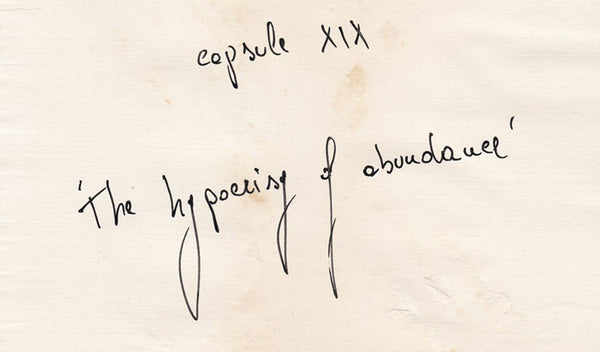 capsule XIX
'The hypocrisy of abundance'